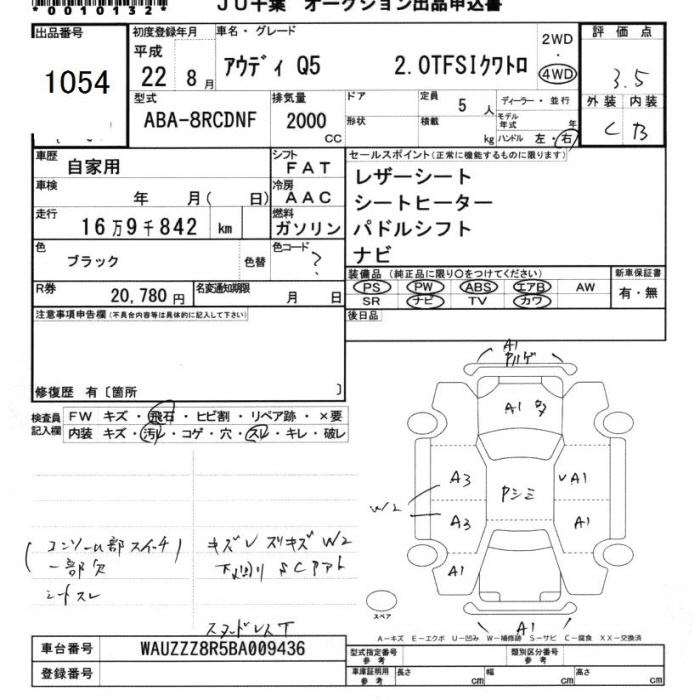 *0010132*
JU千葉 オークション出品申込書
出品番号
1054
初度登録年月
平成
22 8月
車名・グレード
アウディ Q5 2.0TFSIクワトロ
2WD
・
4WD
評価点
3.5
外装 内装
C B
型式
ABA-8RCDNF
排気量
2000
CC
ドア
形状
定員
5 人
積載
kg
ディーラー・並行
モデル年式 年
ハンドル 左・右
車歴
自家用
シフト
FAT
車検
年 月( 日)
冷房
AAC
走行
16万9千842 km
燃料
ガソリン
色
ブラック
色替
色コード
?
R券
20,780円
名変通知期限
月 日
セールスポイント(正常に機能するものに限ります)
レザーシート
シートヒーター
パドルシフト
ナビ
装備品(純正品に限り○をつけてください)
PS PW ABS エアB AW
SR ナビ TV カワ
新車保証書
有・無
後日品
注意事項申告欄(不具合内容等は具体的に記入して下さい)
修復歴 有〔箇所 〕
検査員
記入欄
FW キズ・飛石・ヒビ割・リペア跡・×要
内装 キズ・汚レ・コゲ・穴・スレ・キレ・破レ
A1
A1 多
A3
A3
W2
Pシミ
A1
A1
A1
A1
スペア
一部欠
シートスレ
キズ
W2
A-キズ E-エクボ U-凹み W-補修跡 S-サビ C-腐食 XX-交換済
車台番号
WAUZZZ8R5BA009436
登録番号
型式指定番号
参考
類別区分番号
参考
車庫証明用
参考
長さ cm
幅 cm
高さ cm